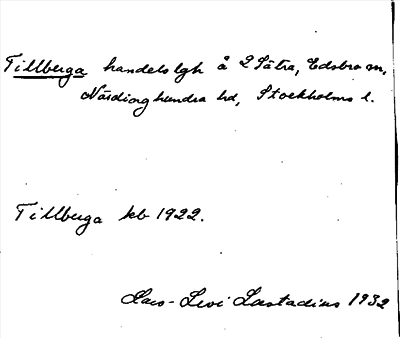 Tillberga handelslgh å 2 Sätra, Edsbro sn,
Närdinghundra hd, Stockholms l.
Tillberga kb 1922.
Lars-Levi Læstadius 1932